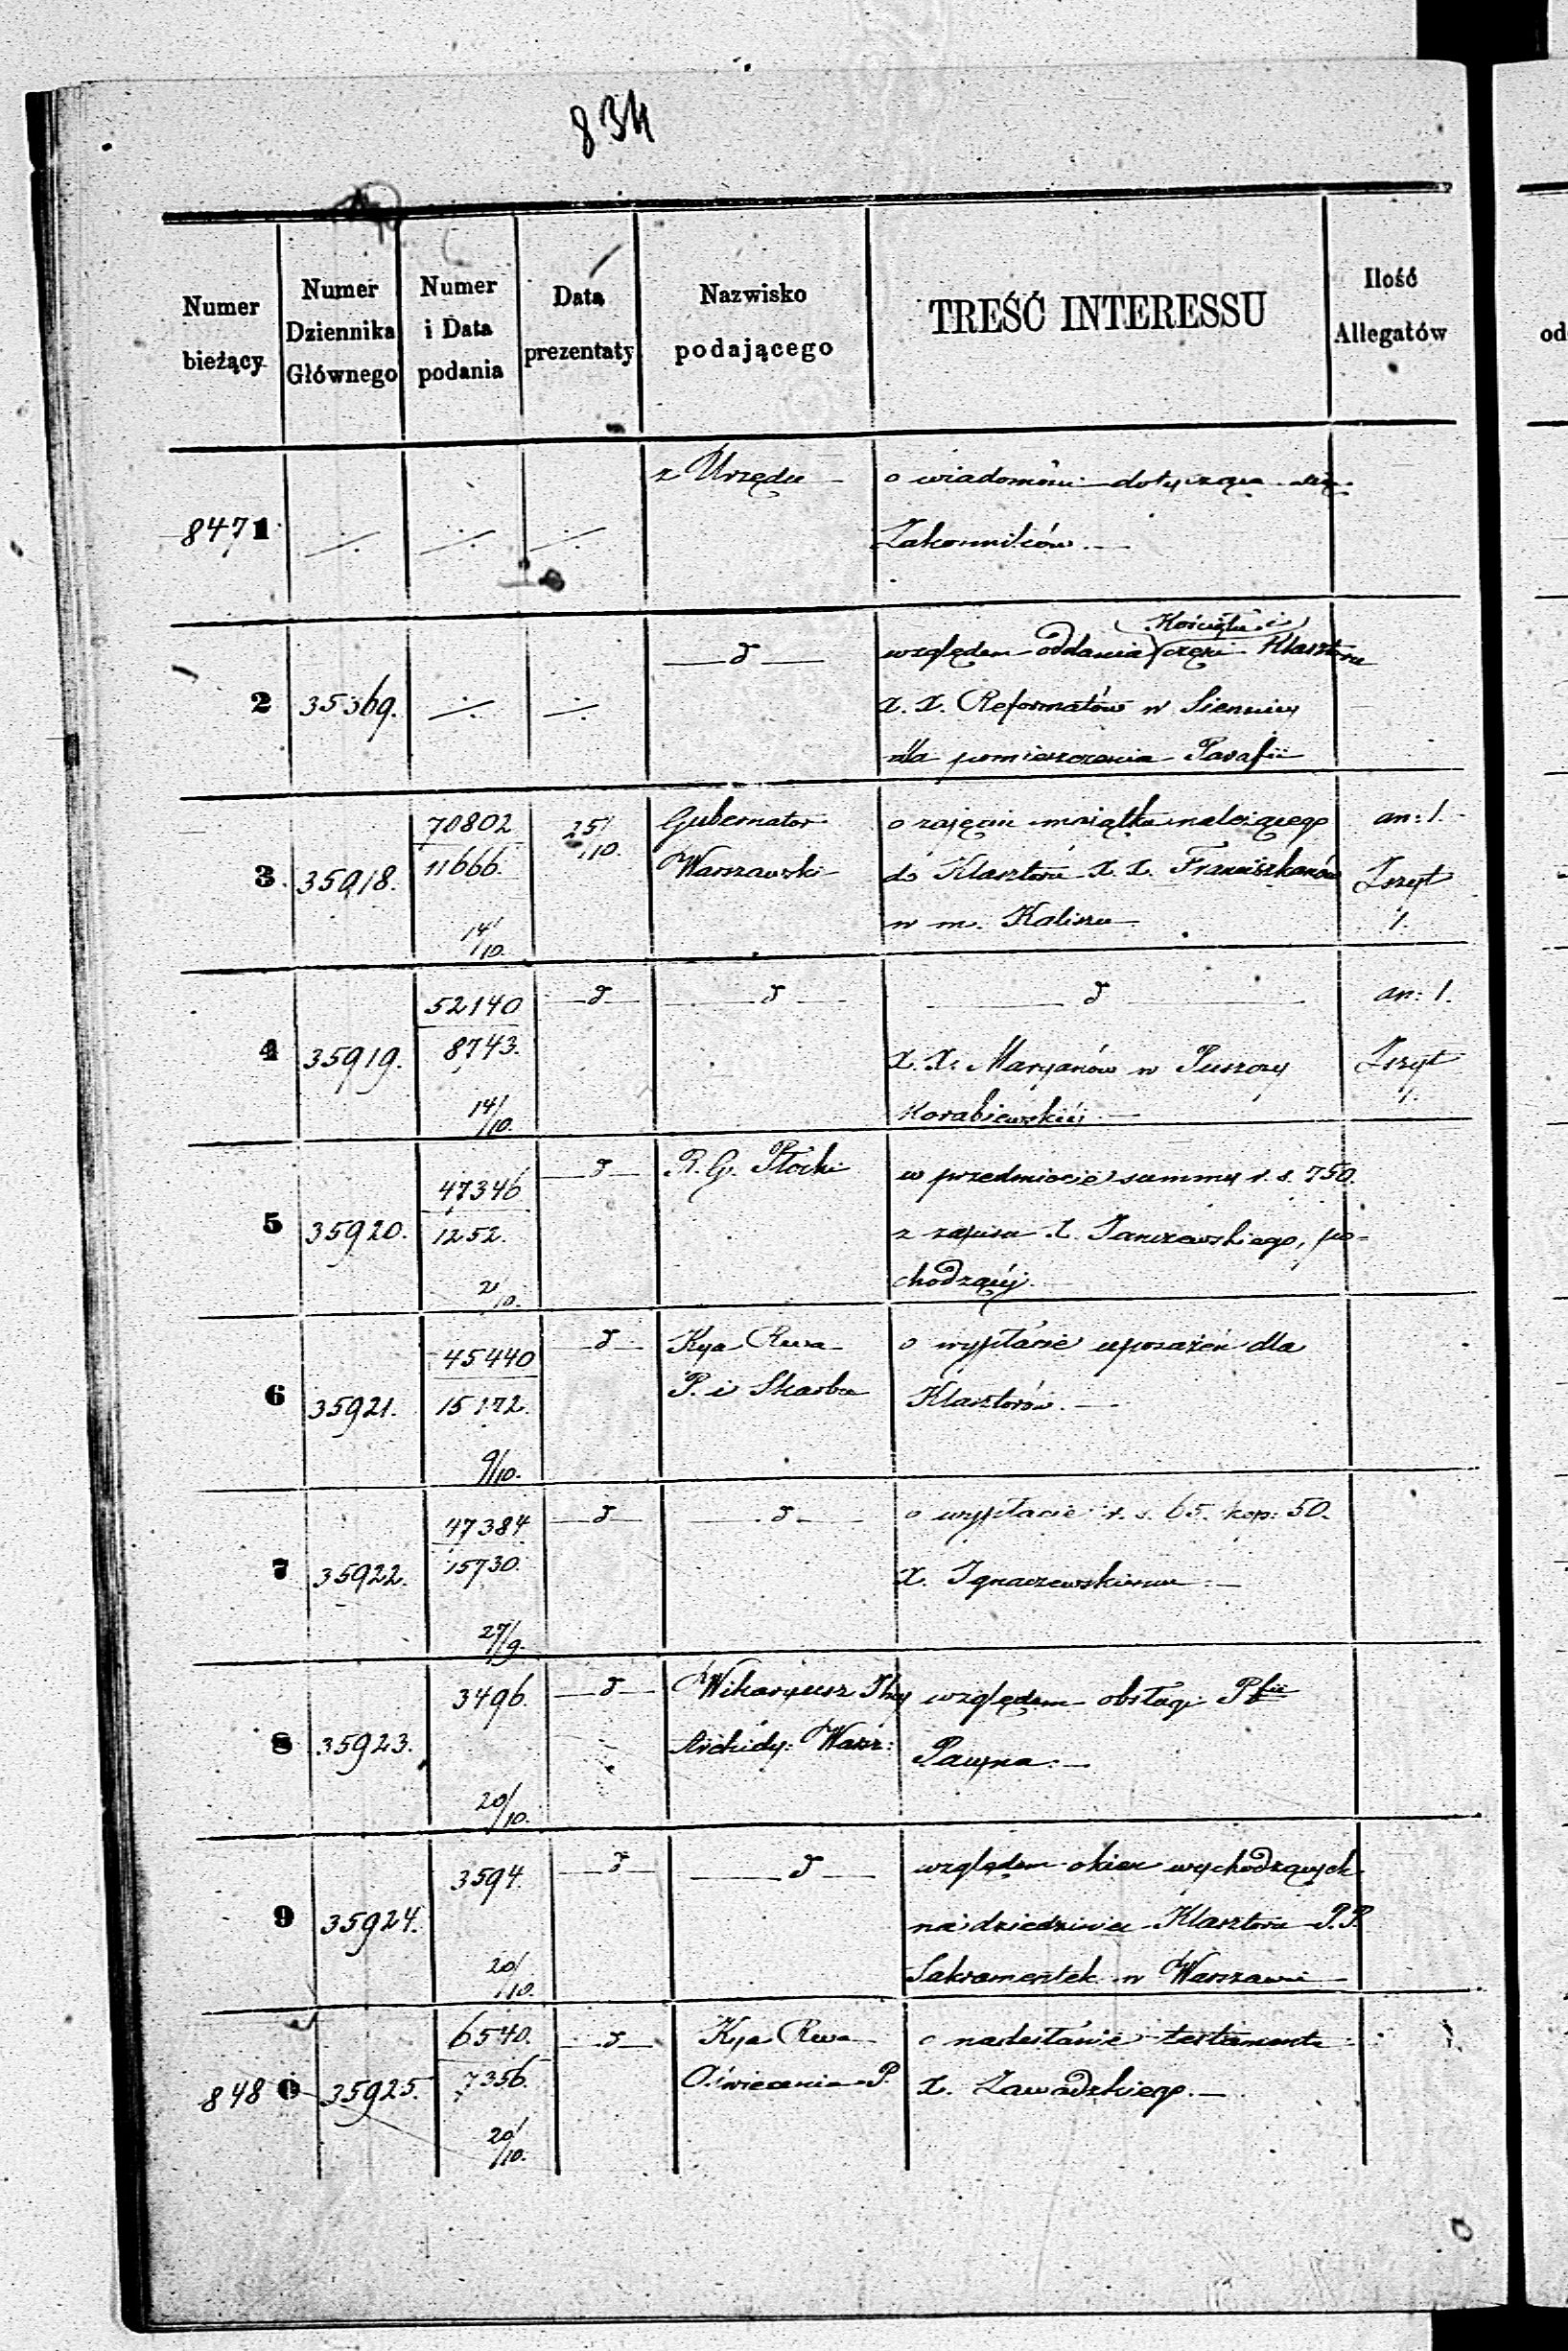 834
Numer bieżący
Numer Dziennika Głównego
Numer i Data podania
Data prezentaty
Nazwisko podającego
TREŚĆ INTERESSU
Ilość Allegatów
od
z Urzędu o wiadomości dotyczące się
8471 ./. ./. ./. Zakonników.
Kościoła i
d względem oddania części Klasztoru
2 35369. ./. ./. X. X. Reformatów w Siennicy
dla pomieszczenia Parafii
70802 25/10. Gubernator o zajęciu majątku należącego an: 1.
3. 35918. 11666. Warszawski do Klasztoru X. X. Franciszkanów Zszyt
14/10. w m. Kaliszu 1.
52140 d d d an: 1.
4 35919. 8743. X. X. Maryanów w Puszczy Zszyt
14/10. Korabiewskiej 1.
47346 d R. G. Płocki w przedmiocie summy r. s. 750.
5 35920. 1252. z zapisu X. Janczewskiego, po-
2/10. chodzącej.
45440 d Kya Rwa o wypłacie uposażeń dla
6 35921. 15172. P. i Skarbu Klasztorów.
9/10.
47384 d d o wypłacie r. s. 65. kop: 50.
7 35922. 15730. X. Ignaczewskiemu
27/9.
3496. d Wikaryusz względem obsługi Pfii
8 35923. Archidy: Warsz:
20/10.
3594. d d względem okien wychodzących
9 35924. na dziedziniec Klasztoru P.P.
20/10. Sakramentek w Warszawie
6540. d Kya Rwa o nadesłanie testamentu
8480 35925. 7356. Oświecenia P. X. Zawadzkiego.
20/10.